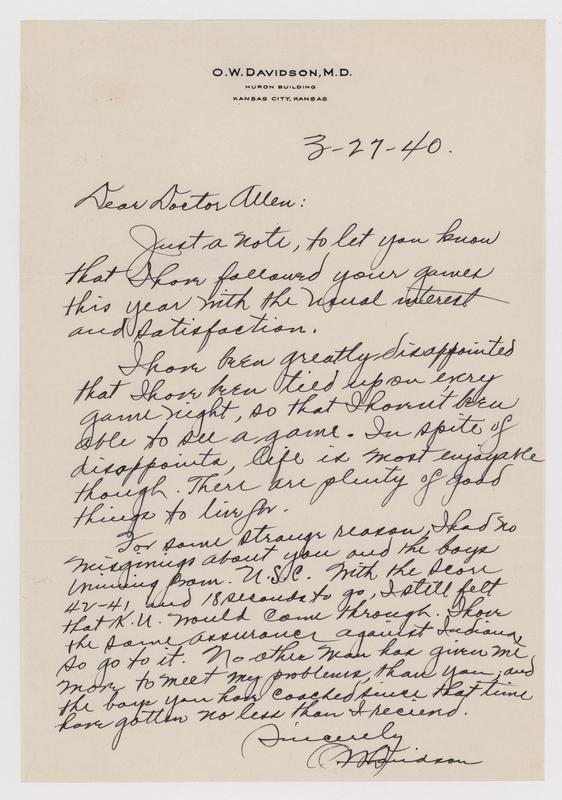 O.W. DAVIDSON, M.D.
HURON BUILDING
KANSAS CITY, KANSAS
3-27-40.
Dear Doctor Allen:
Just a note, to let you know
that I have followed your games
this year with the usual interest
and satisfaction.
I have been greatly disappointed
that I have been tied up on every
game night, so that I haven't been
able to see a game. In spite of
disappoints, life is most enjoyable
though. There are plenty of good
things to live for.
For some strange reason, I had no
misgivings about you and the boys
winning from U.S.C. With the score
42-41, and 18 seconds to go, I still felt
that K.U. would come through. I have
the same assurance against Indiana,
so go to it. No other man has given me
more to meet my problems, than you, and
the boys you have coached since that time
have gotten no less than I reciend.
Sincerely
OWDavidson